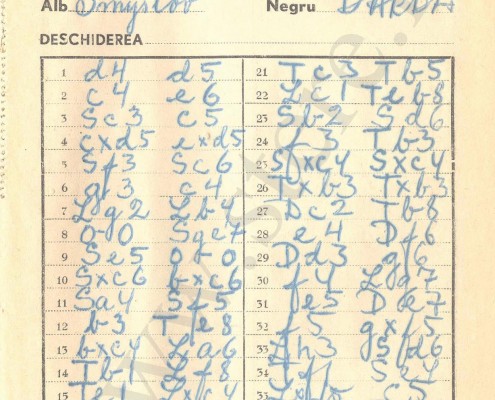 Alb Smyslov Negru
DESCHIDEREA
1 d4 d5 21 Tc3 Tb5
2 c4 e6 22 Lc1 Teb8
3 Sc3 c5 23 Sb2 Sd6
4 cxd5 exd5 24 f3 Tb3
5 Sf3 Sc6 25 Sxc4 Sxc4
6 gf3 c4 26 Txb3 Txb3
7 Lg2 Lb4 27 Dc2 Tb8
8 o-o Sge7 28 e4 Df6
9 Se5 o-o 29 Dd3 gf6
10 Sxc6 bxc6 30 f4 Ld7
11 Sa4 Sf5 31 fe5 De7
12 b3 Te8 32 f5 gxf5
13 bxc4 La6 33 Lh3 fd6
14 Tb1 Lf8 34
Te1 Lxc4 c5